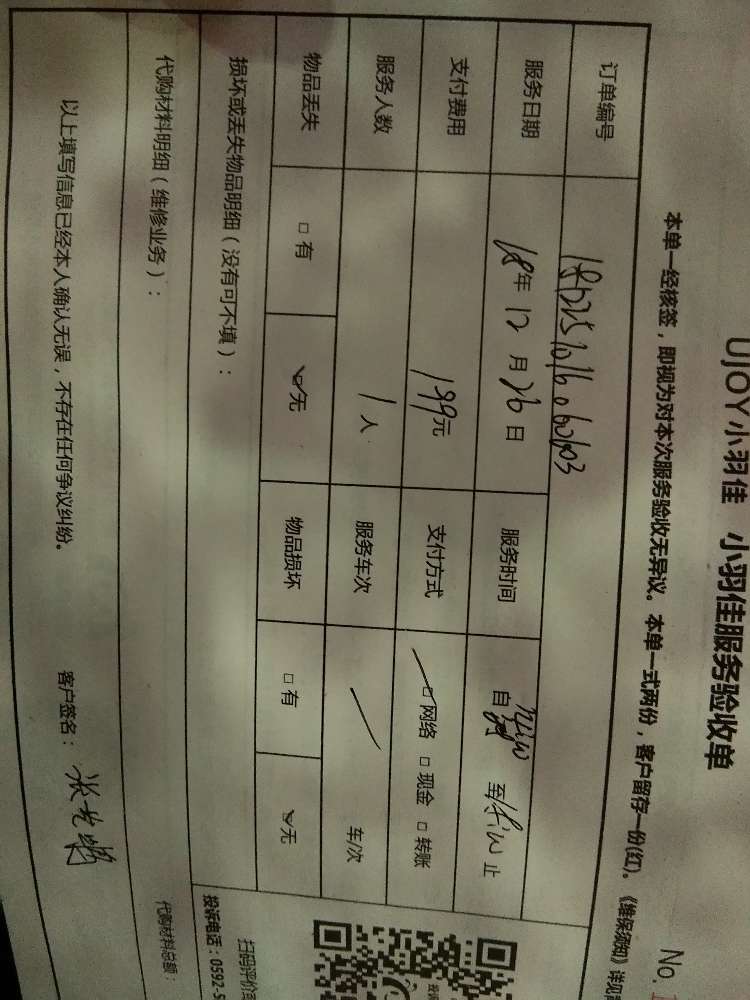 UJOY小羽佳 小羽佳服务验收单
No.
本单一经核签，即视为对本次服务验收无异议。本单一式两份，客户留存一份(红)。《维保须知》详见
订单编号
服务日期 18年 12月 26日 服务时间 自 至 止
支付费用 199元 支付方式 □网络 □现金 □转账
服务人数 1人 服务车次 车/次
物品丢失 □有 无 物品损坏 □有 无
损坏或丢失物品明细（没有可不填）：
扫码评价
投诉电话：0592-5
代购材料明细（维修业务）： 代购材料总额：
以上填写信息已经本人确认无误，不存在任何争议纠纷。 客户签名：